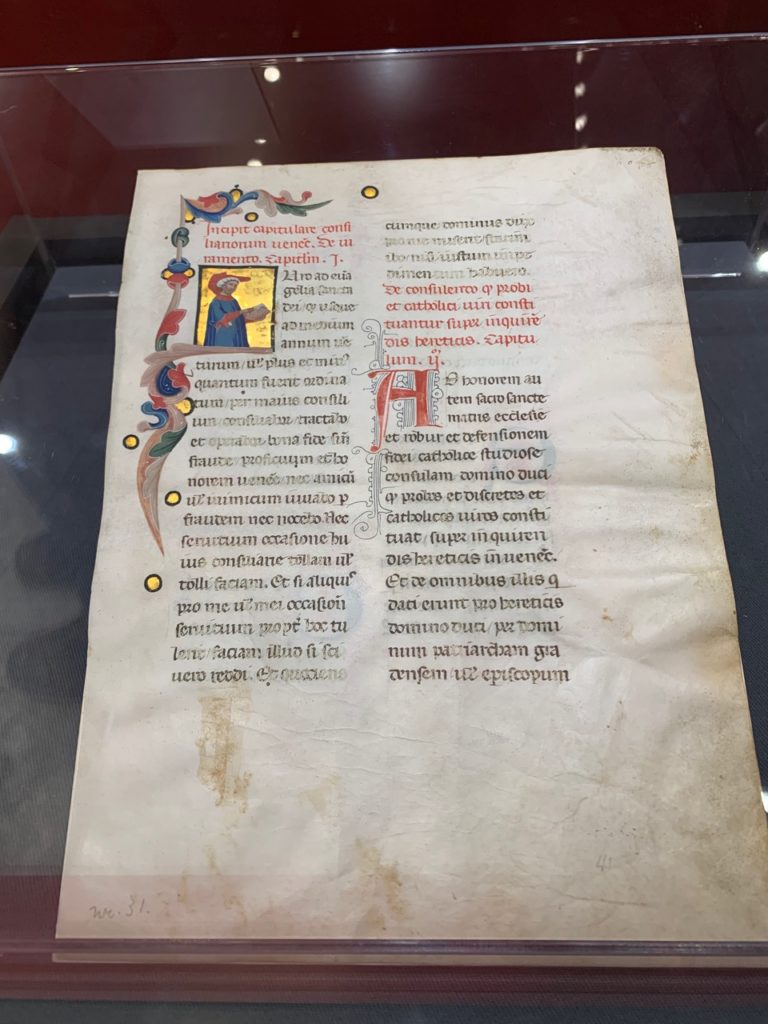 Incipit capitulare consi
liariorum uenec. De iu
ramento. Capitlm. I.
Uro ad eua
gelia sancta
dei, q usque
ad medium
annum ue
turum, ul plus et min
quantum fuerit ordina
tum, per maius consili
um, consiliabor, tractabo,
et operabor bona fide sin
fraude, proficuum et bo
norem uenec, nec amicu
ul inimicum iuuabo p
fraudem nec nocebo. Nec
seruitium occasione hu
ius consiliarie tollam ul
tolli faciam. Et si aliquis
pro me ul mei occasion
seruitium propt hoc tu
lerit, faciam illud si sci
uero reddi. Et quociens
cumque, dominus dux
pro me miserit,
ibo, nisi iustum
dimentum habuero.
De consulendo q probi
et catholici uiri consti
tuantur super inquire
dis hereticis. Capitu
lum. ij.
AD honorem au
tem sacrosancte
matris ecclesie
et robur et defensionem
fidei catholice studiose
consulam domino duci
q probos et discretos et
catholicos uiros consti
tuat, super inquiren
dis hereticis in uenec.
Et de omnibus illis q
dati erunt pro hereticis
domino duci, per domi
num patriarcham gra
densem, ul episcopum
41
nr. 31.